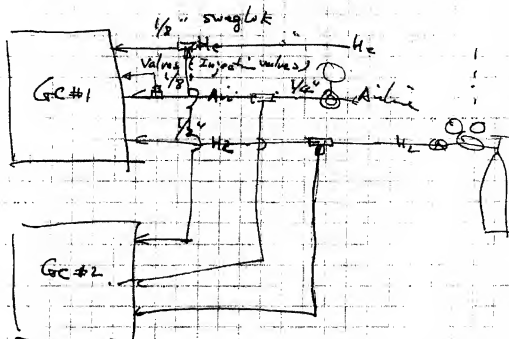 1/8 " swaglok
He He
Valves (Injection valves)
1/8
GC#1 Air 1/4" Airline
1/8" H2 H2
GC#2